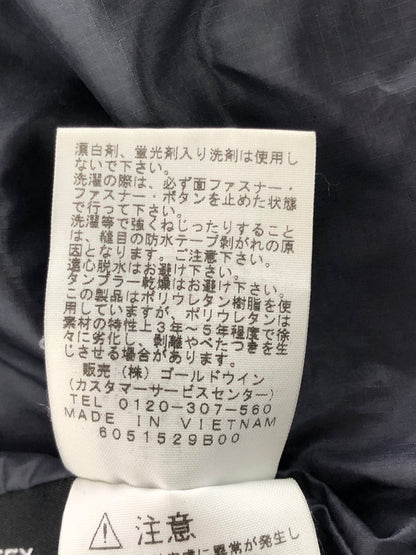 漂白剤、蛍光剤入り洗剤は使用し
ないで下さい。
洗濯の際は、必ず面ファスナー・
ファスナー・ボタンを止めた状態
で行って下さい。
洗濯等で強くねじったりすること
は、縫目の防水テープ剥がれの原
因となります。ご注意下さい。
遠心脱水はお避け下さい。
タンブラー乾燥はお避け下さい。
この製品はポリウレタン樹脂を使
用していますが、ポリウレタンは
素材の特性上3年～5年程度で徐
々に劣化し、剥離やべたつきを生
じさせる場合があります。
販売 (株) ゴールドウイン
(カスタマーサービスセンター)
TEL 0120-307-560
MADE IN VIETNAM
6051529B00
注意
に異常が発生し